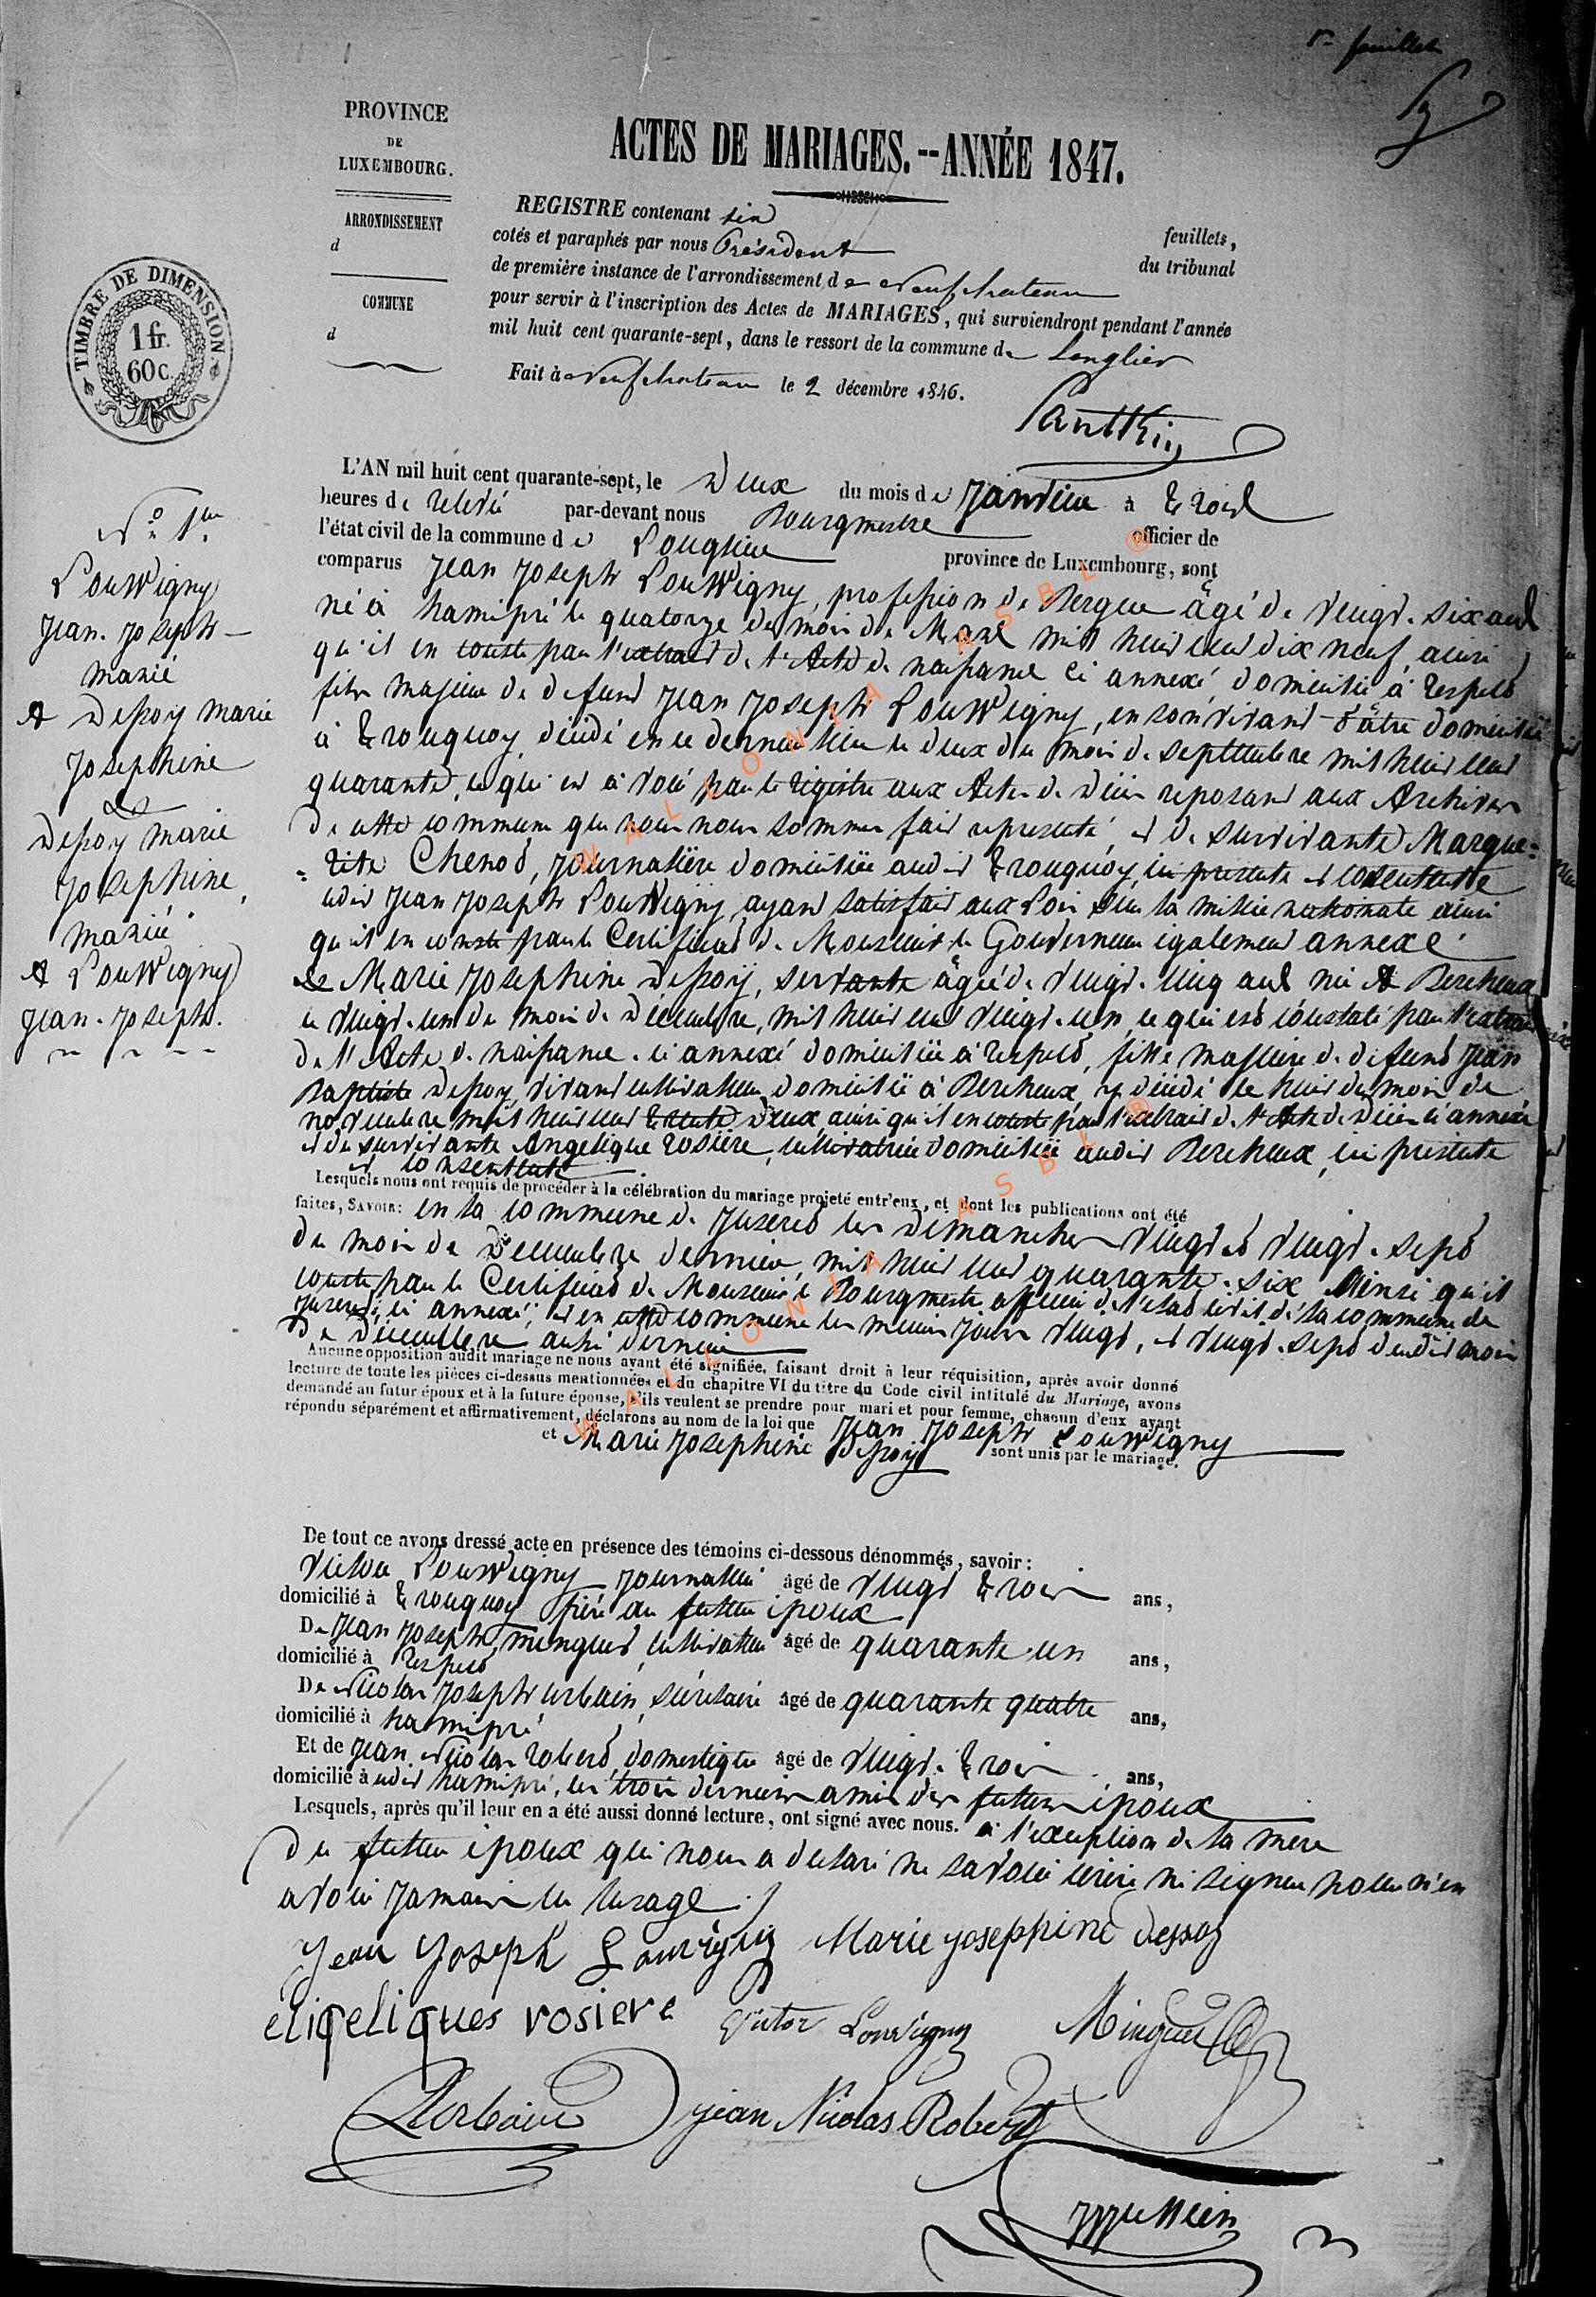 1er feuillet
PROVINCE
DE
LUXEMBOURG.
ARRONDISSEMENT
d
COMMUNE
d
TIMBRE DE DIMENSION
1 fr.
60 c.
ACTES DE MARIAGES.--ANNÉE 1847.
REGISTRE contenant six feuillets,
cotés et paraphés par nous Président du tribunal
de première instance de l'arrondissement de Neufchateau
pour servir à l'inscription des Actes de MARIAGES, qui surviendront pendant l'année
mil huit cent quarante-sept, dans le ressort de la commune de Longlier
Fait à Neufchateau le 2 décembre 1846.
N.° 1er
Louwigny
Jean-Joseph
marié
A Depoy marie
Josephine
Depoy marie
Josephine,
mariée
A Louwigny
Jean-Joseph.
L'AN mil huit cent quarante-sept, le Deux du mois de Janvier à trois
heures de relevée par-devant nous Bourgmestre officier de
l'état civil de la commune de Longlier province de Luxembourg, sont
comparus Jean Joseph Louwigny, profession de Berger âgé de vingt-six ans
né à hamipré le quatorze du mois de Mars mil huit cent dix neuf, ainsi
qu'il en conste par l'extrait de l'Acte de naissance ci annexé, domicilié à respelt
fils majeur de défunt Jean Joseph Louwigny, en son vivant pâtre domicilié
à tronquoy, décédé en ce dernier lieu le deux du mois de septembre mil huit cent
quarante, ce qui est à voir par le régistre aux Actes de Décès reposant aux Archives
De cette commune que nous nous sommes fait représenté, et de survivante Margue=
=rite Chenot, journalière domiciliée audit tronquoy, ici présente et consentente
ledit Jean Joseph Louwigny ayant satisfait aux Lois sur la milice nationale ainsi
qu'il en conste par le Certificat de Monsieur le Gouverneur également annexé
Et Marie Josephine Depoy, servante âgée de vingt-cinq ans née A Bercheux
le vingt-un du mois de Décembre, mil huit cent vingt-un, ce qui est constaté par l'extrait
de l'Acte de naissance, ci annexé domiciliée à respelt, fille majeure de défunt Jean
Baptiste Depoy, vivant cultivateur, domicilié à Bercheux, y décédé le huit du mois de
novembre mil huit cent trente Deux, ainsi qu'il en conste par l'extrait de l'Acte de Décès ci annexé
et de survivante Angelique rosière, cultivatrice domiciliée audit Bercheux, ici présente
et consentante
Lesquels nous ont requis de procéder à la célébration du mariage projeté entr'eux, et dont les publications ont été
faites, SAVOIR: en la commune de Juseret les Dimanches vingt et vingt-sept
du mois de Décembre dernier, mil huit cent quarante-six, Ainsi qu'il
conste par le Certificat de Monsieur le Bourgmestre officier de l'état civil de la commune de
Juseret, ci annexé, et en cette commune les mêmes jours vingt, et vingt-sept dudit mois
De Décembre aussi dernier
Aucune opposition audit mariage ne nous ayant été signifiée, faisant droit à leur réquisition, après avoir donné
lecture de toute les pièces ci-dessus mentionnées et du chapitre VI du titre du Code civil intitulé du Mariage, avons
demandé au futur époux et à la future épouse, s'ils veulent se prendre pour mari et pour femme, chacun d'eux ayant
répondu séparément et affirmativement, déclarons au nom de la loi que Jean Joseph Louwigny
et Marie Josephine Depoy sont unis par le mariage.
De tout ce avons dressé acte en présence des témoins ci-dessous dénommés, savoir:
Victor Louwigny journalier âgé de vingt trois ans,
domicilié à tronquoy frère du futur époux
De Jean Joseph minguet, cultivateur âgé de quarante-un ans,
domicilié à respelt
De Nicolas Joseph urbain, secrétaire âgé de quarante quatre ans,
domicilié à hamipré
Et de Jean Nicolas robert, domestique âgé de vingt-trois ans,
domicilié à udit hamipré, les trois derniers amis des futurs époux
Lesquels, après qu'il leur en a été aussi donné lecture, ont signé avec nous. à l'exception de la mère
du futur époux qui nous a déclaré ne savoir écrire ni signer pour n'en
avoir jamais eu l'usage
Jean Joseph Louvigny Marie josephine dessoy
eliqeliques rosiere Victor Louvigny Minguet
Urbain jean Nicolas Robert
WALLONIA ASBL ®
WALLONIA ASBL ®